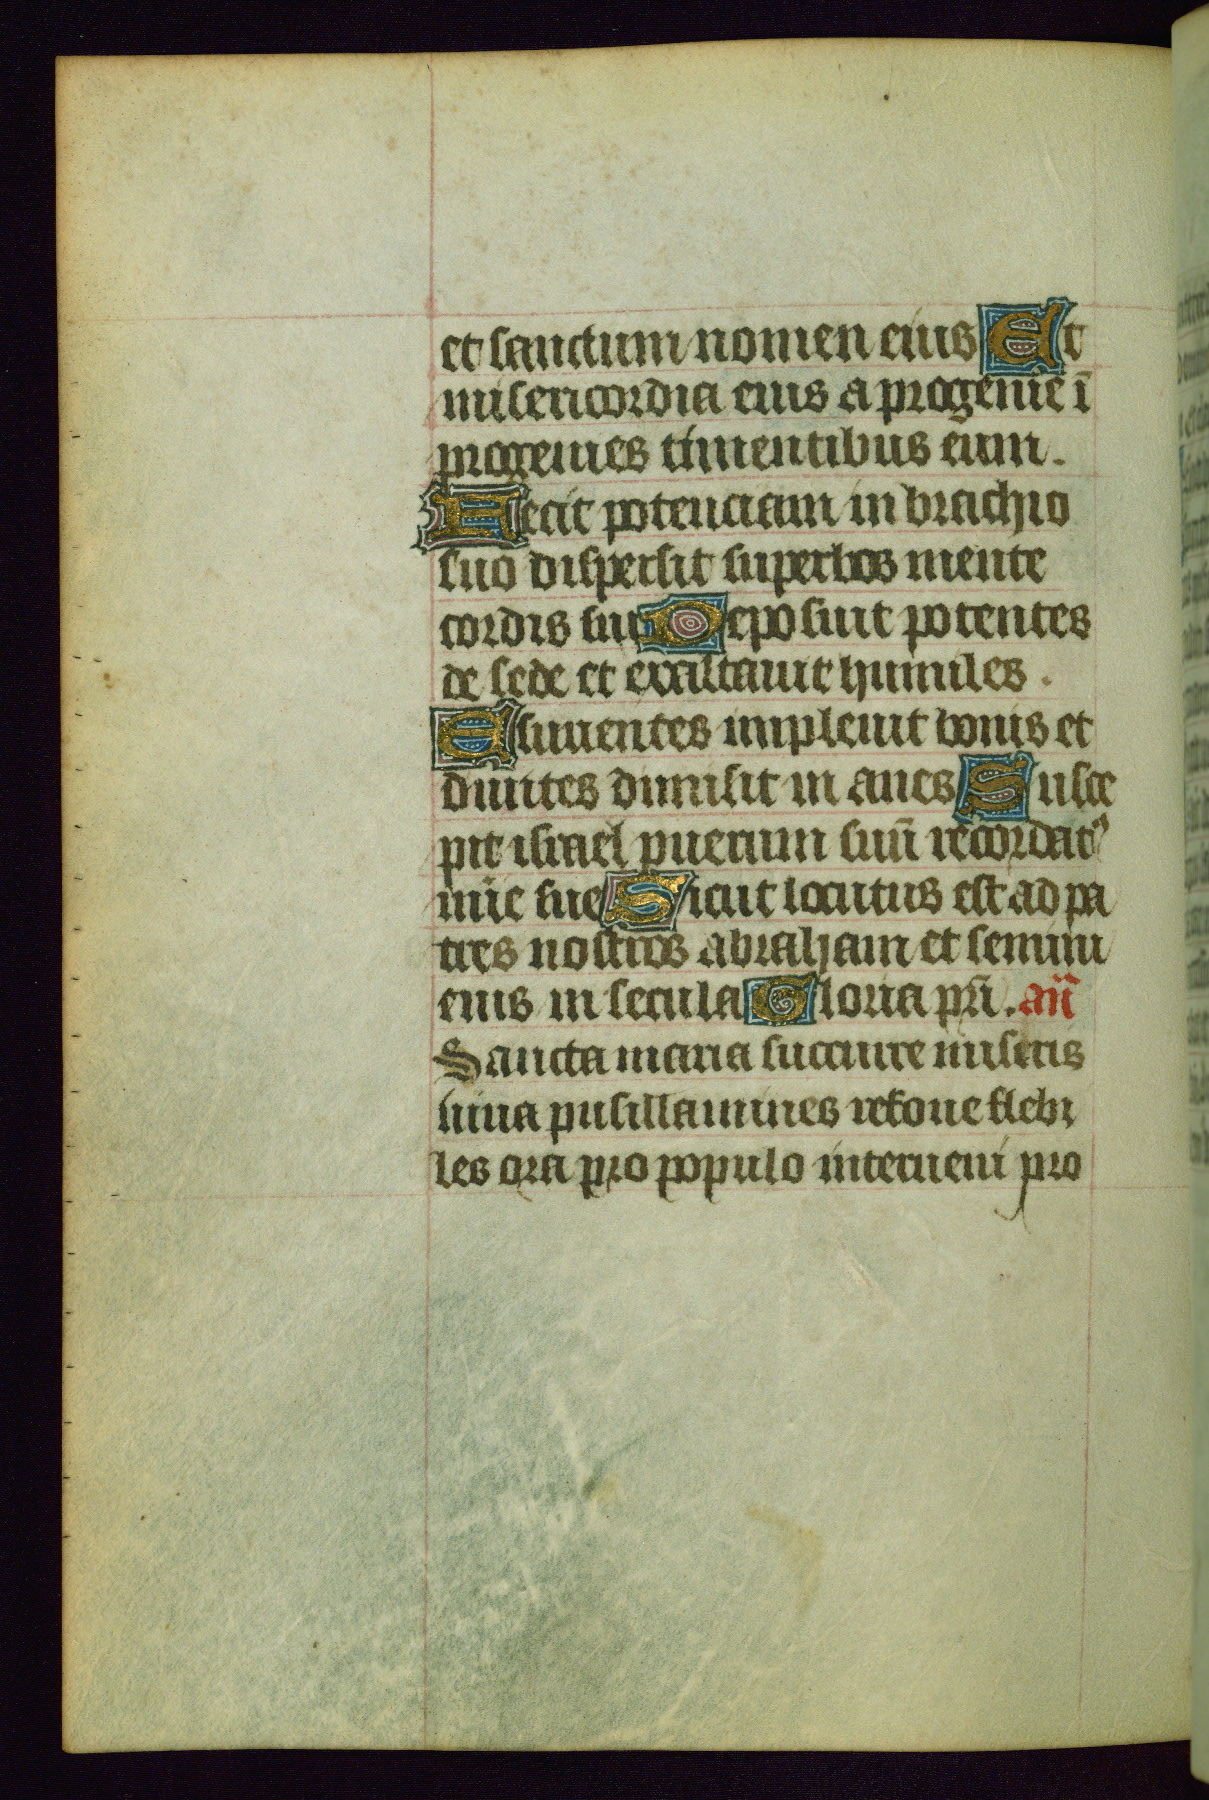 et sanctum nomen eius Et
misericordia eius a progenie ī
progenies timentibus eum.
Fecit potenciam in brachio
suo dispersit superbos mente
cordis sui Deposuit potentes
de sede et exaltauit humiles.
Esurientes impleuit bonis et
diuites dimisit in anes Susce
pit israel puerum suū recordatꝰ
mīe sue Sicut locutus est ad pa
tres nostros abraham et semini
eius in secula Gloria pr̄i. an̄
Sancta maria succurre miseris
iuua pusillanimes refoue flebi
les ora pro populo interueni pro